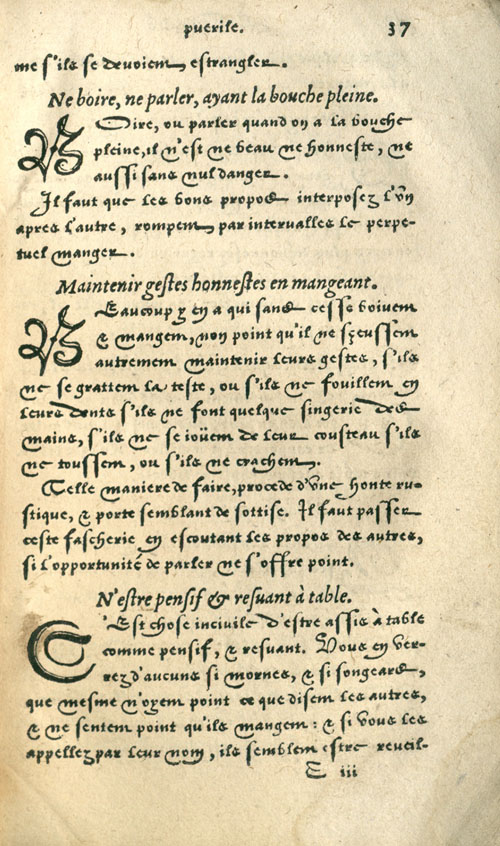 puerile. 37
me s'ils se devoient estrangler.
Ne boire, ne parler, ayant la bouche pleine.
Boire, ou parler quand on a la bouche
pleine, il n'est ne beau ne honneste, ne
aussi sans nul danger.
Il faut que les bons propos interposez l'un
apres l'autre, rompent par intervalles le perpe-
tuel manger.
Maintenir gestes honnestes en mangeant.
BEaucoup y en a qui sans cesse boivent
& mangent, non point qu'il ne sçeussent
autrement maintenir leurs gestes, s'ils
ne se grattent la teste, ou s'ils ne fouillent en
leurs dents s'ils ne font quelque singerie des
mains, s'ils ne se ioüent de leur cousteau s'ils
ne toussent, ou s'ils ne crachent.
Telle maniere de faire, procede d'vne honte ru-
stique, & porte semblant de sottise. Il faut passer
ceste fascherie en escoutant les propos des autres,
si l'opportunité de parler ne s'offre point.
N'estre pensif & resuant à table.
C'Est chose incivile d'estre assis à table
comme pensif, & resuant. Vous en ver-
rez d'aucuns si mornes, & si songeards,
que mesme n'oyent point ce que disent les autres,
& ne sentent point qu'ils mangent : & si vous les
appellez par leur nom, ils semblent estre reveil-
E iii